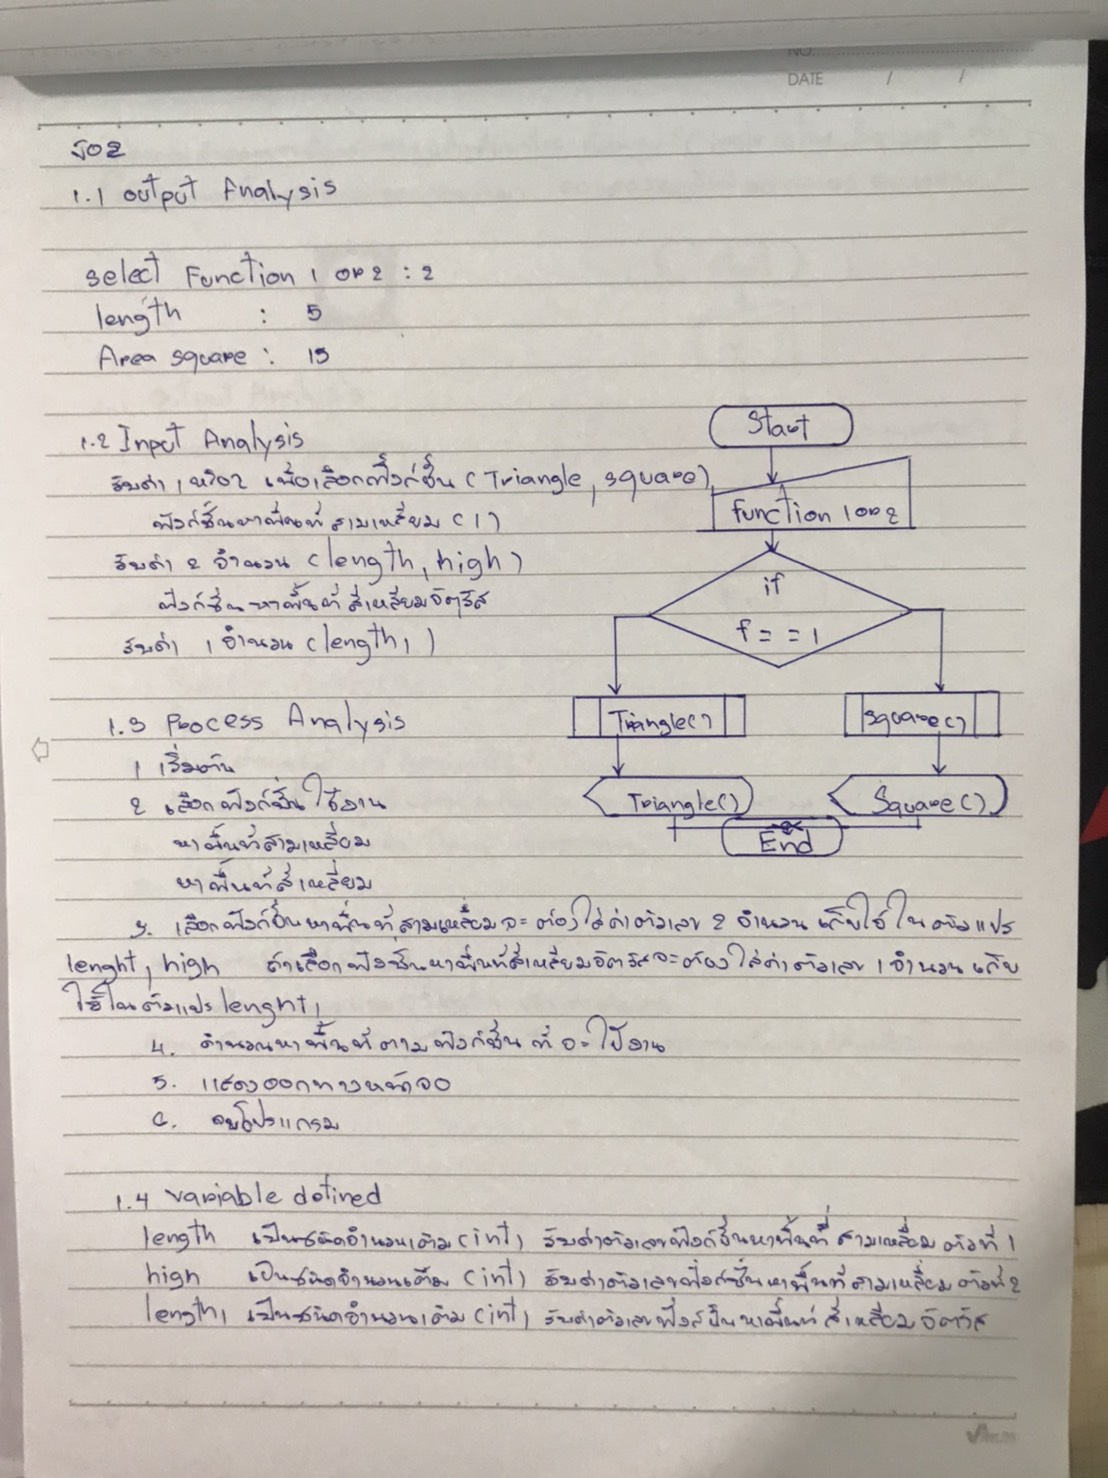 NO.
DATE / /
ข้อ 2
1.1 output Analysis
select Function 1 or 2 : 2
length : 5
Area square : 15
1.2 Input Analysis
รับค่า 1 หรือ 2 เพื่อเลือกฟังก์ชั่น (Triangle, square)
ฟังก์ชั่นหาพื้นที่สามเหลี่ยม (1)
รับค่า 2 จำนวน (length, high)
ฟังก์ชั่นหาพื้นที่สี่เหลี่ยมจัตุรัส
รับค่า 1 จำนวน (length1)
Start
function 1 or 2
if
f = = 1
Triangle()
square()
Triangle()
Square()
End
1.3 Process Analysis
1 เริ่มต้น
2 เลือกฟังก์ชั่นใช้งาน
หาพื้นที่สามเหลี่ยม
หาพื้นที่สี่เหลี่ยม
3. เลือกฟังก์ชั่นหาพื้นที่สามเหลี่ยมจะต้องใส่ค่าตัวเลข 2 จำนวน เก็บไว้ในตัวแปร
lenght, high ถ้าเลือกฟังชั่นหาพื้นที่สี่เหลี่ยมจัตุรัสจะต้องใส่ค่าตัวเลข 1 จำนวน เก็บ
ไว้ในตัวแปร lenght1
4. คำนวณหาพื้นที่ตามฟังก์ชั่นที่จะใช้งาน
5. แสดงออกทางหน้าจอ
6. จบโปรแกรม
1.4 variable defined
length เป็นชนิดจำนวนเต็ม (int) รับค่าตัวเลขฟังก์ชั่นหาพื้นที่สามเหลี่ยม ตัวที่ 1
high เป็นชนิดจำนวนเต็ม (int) รับค่าตัวเลขฟังก์ชั่นหาพื้นที่สามเหลี่ยม ตัวที่ 2
length1 เป็นชนิดจำนวนเต็ม (int) รับค่าตัวเลขฟังก์ชั่นหาพื้นที่สี่เหลี่ยมจัตุรัส